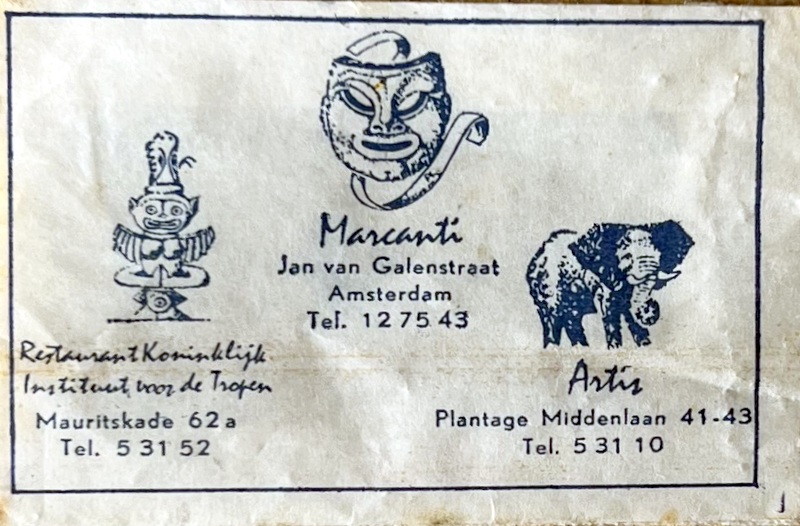 Marcanti
Jan van Galenstraat
Amsterdam
Tel. 12 75 43
Restaurant Koninklijk
Instituut voor de Tropen
Mauritskade 62a
Tel. 5 31 52
Artis
Plantage Middenlaan 41-43
Tel. 5 31 10